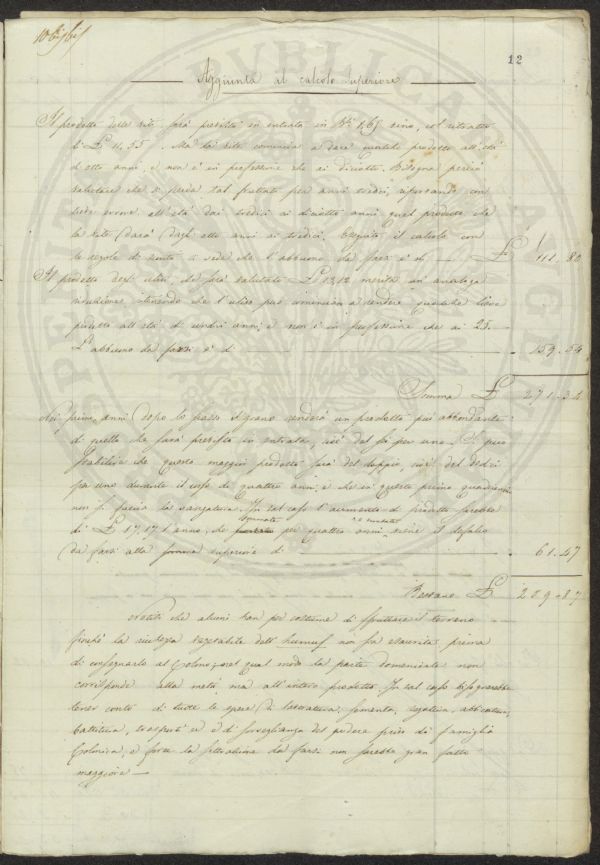 10 bis/bis
12
Aggiunta al calcolo superiore
Il prodotto delle viti sarà prestato in entrata in Bi. 1,65 vino, col ritratto
di £ 11,55. Ma la vite comincia a dare qualche prodotto all'età
d'otto anni, e non è in perfezione che ai diciotto. Bisogna perciò
valutare che si perda tal fruttato per anni tredici, riportando con
all'età dai tredici ai diciotto anni quel prodotto che
la vite darà dagli otto anni ai tredici. Eseguito il calcolo con
le regole di si vede che l'abbuono da farsi è di £ 111.80
Il prodotto degli ulivi, che sarà valutato £ 13,12 merita un'analoga
riduzione, che l'ulivo può cominciare a rendere qualche
prodotto all'età di undici anni, e non è in perfezione che ai 25.
L'abbuono da farsi è di 159.54
Somma £ 271.34
Nei primi anni dopo lo il grano renderà un prodotto più abbondante
di quello che sarà prestato in entrata, cioè del sei per uno. Si può
stabilire che questo maggior prodotto sarà del doppio, cioè del dodici
per uno durante il corso di quattro anni, e che in questo primo quadriennio
non si faccia la vangatura. In tal caso l'aumento di prodotto sarebbe
di £ 17,17 l'anno, che per quattro anni viene il defalco
da farsi alla somma superiore di 61.47
Restano £ 209.87
Notisi che alcuni han per costume di sfruttare il terreno
finché la ricchezza vegetabile dell'humus non sia esaurita, prima
di consegnarlo al Colono, nel qual modo la parte domenicale non
corrisponde alla metà ma all'intero prodotto. In tal caso bisognerebbe
tener conto di tutte le spese di lavoratura, sementa, segatura, abbicatura,
battitura, trasporti ed è di sorveglianza del podere privo di famiglia
Colonica, e forse la sottrazione da farsi non sarebbe gran fatto
maggiore